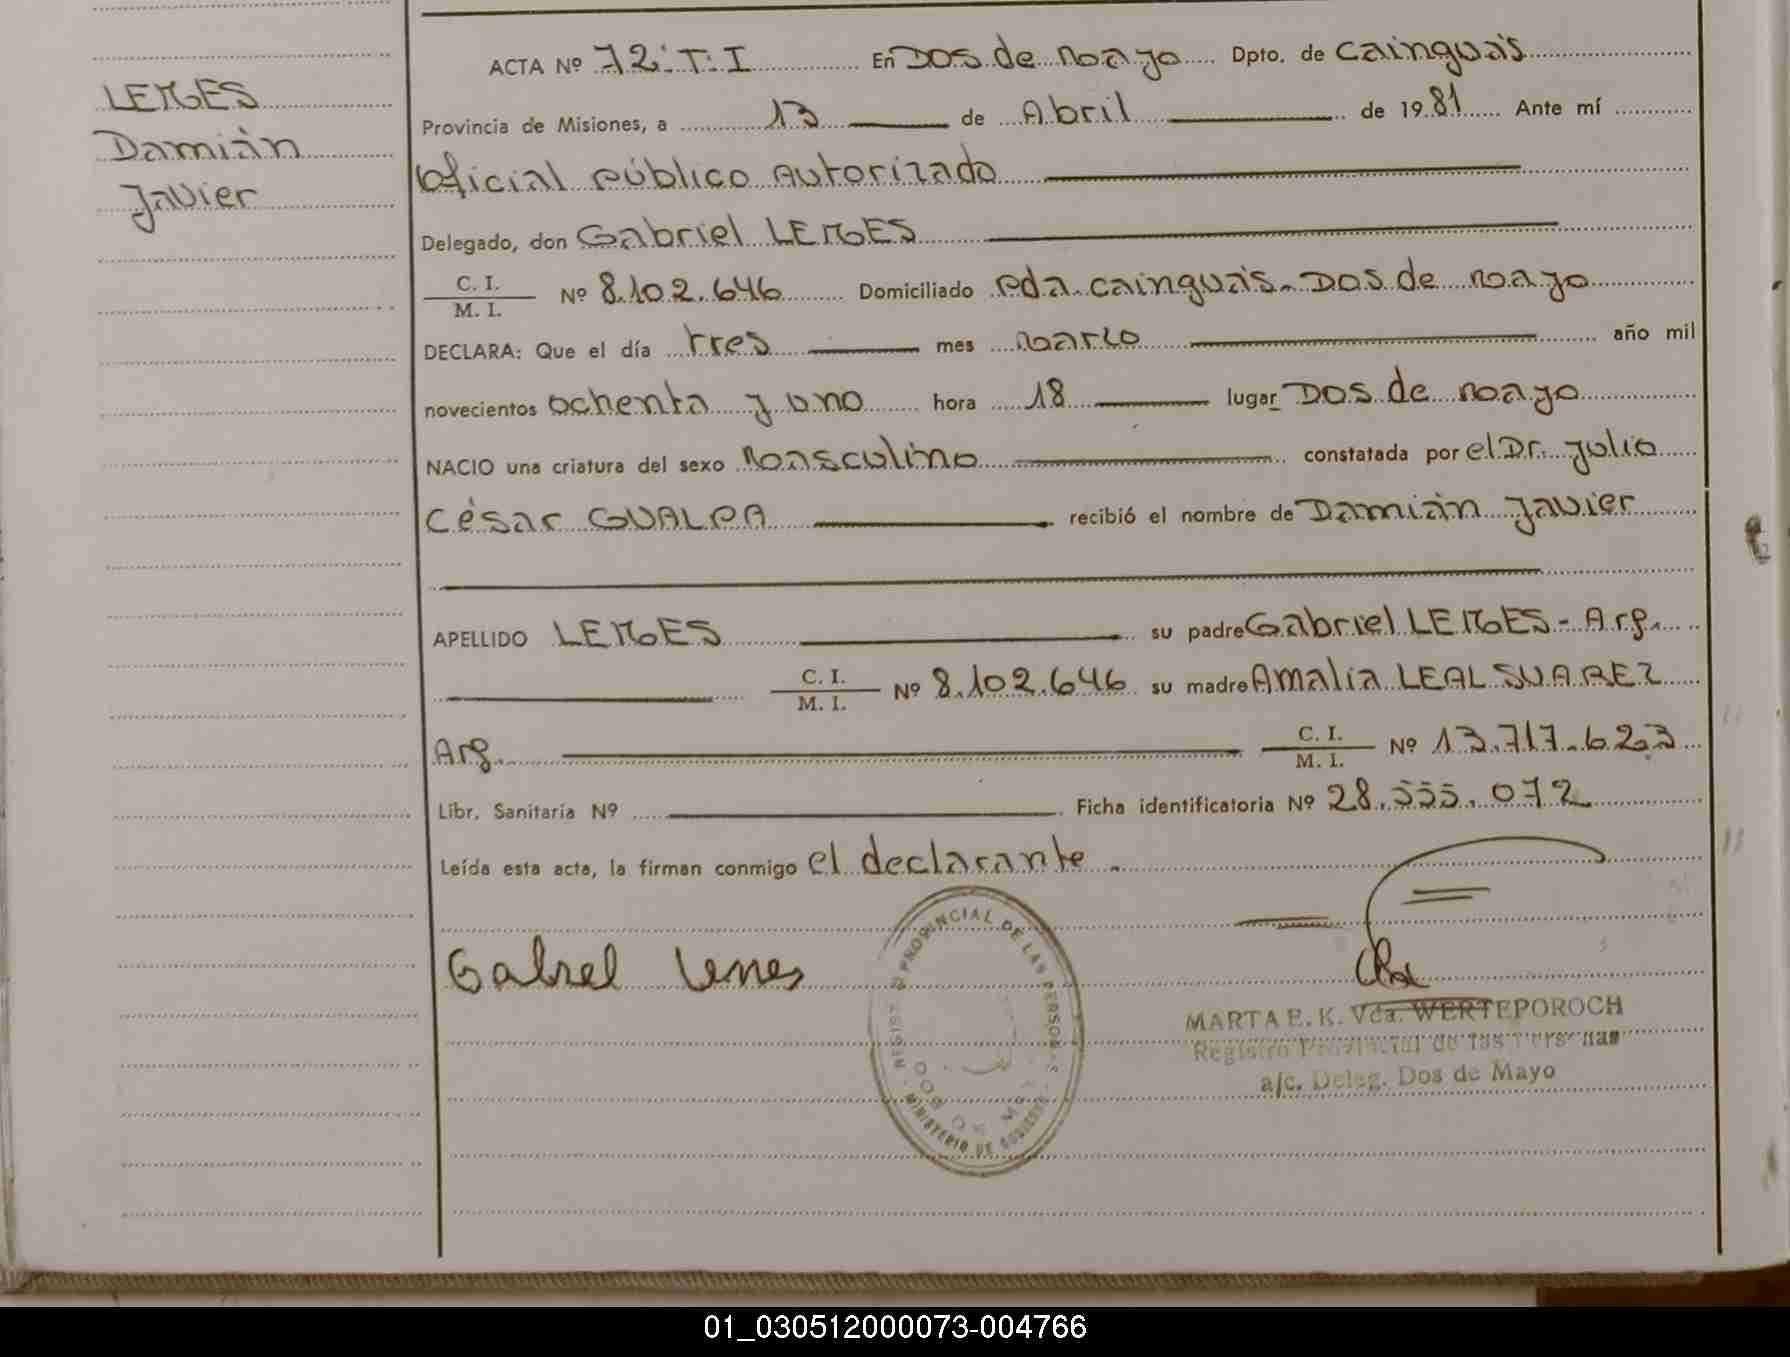 LEMES
Damián
Javier
ACTA Nº 72: T: I En Dos de Mayo Dpto. de Cainguás
Provincia de Misiones, a 13 de Abril de 1981 Ante mí
Oficial Público Autorizado
Delegado, don Gabriel LEMES
C. I.
M. I. Nº 8.102.646 Domiciliado Pda. Cainguás - Dos de Mayo
DECLARA: Que el día tres mes Marzo año mil
novecientos ochenta y uno hora 18 lugar Dos de Mayo
NACIO una criatura del sexo Masculino constatada por el Dr. Julio
César GUALPA recibió el nombre de Damián Javier
APELLIDO LEMES su padre Gabriel LEMES - Arg.
C. I.
M. I. Nº 8.102.646 su madre Amalia LEAL SUAREZ
Arg. C. I.
M. I. Nº 13.717.623
Libr. Sanitaria Nº Ficha identificatoria Nº 28.555.072
Leída esta acta, la firman conmigo el declarante.
Gabriel Lemes
PROVINCIAL DE LAS PERSONAS
MINISTERIO DE GOBIERNO
MARTA E. K. Vda. WERTEPOROCH
Registro Provincial de las Personas
a/c. Deleg. Dos de Mayo
01_030512000073-004766